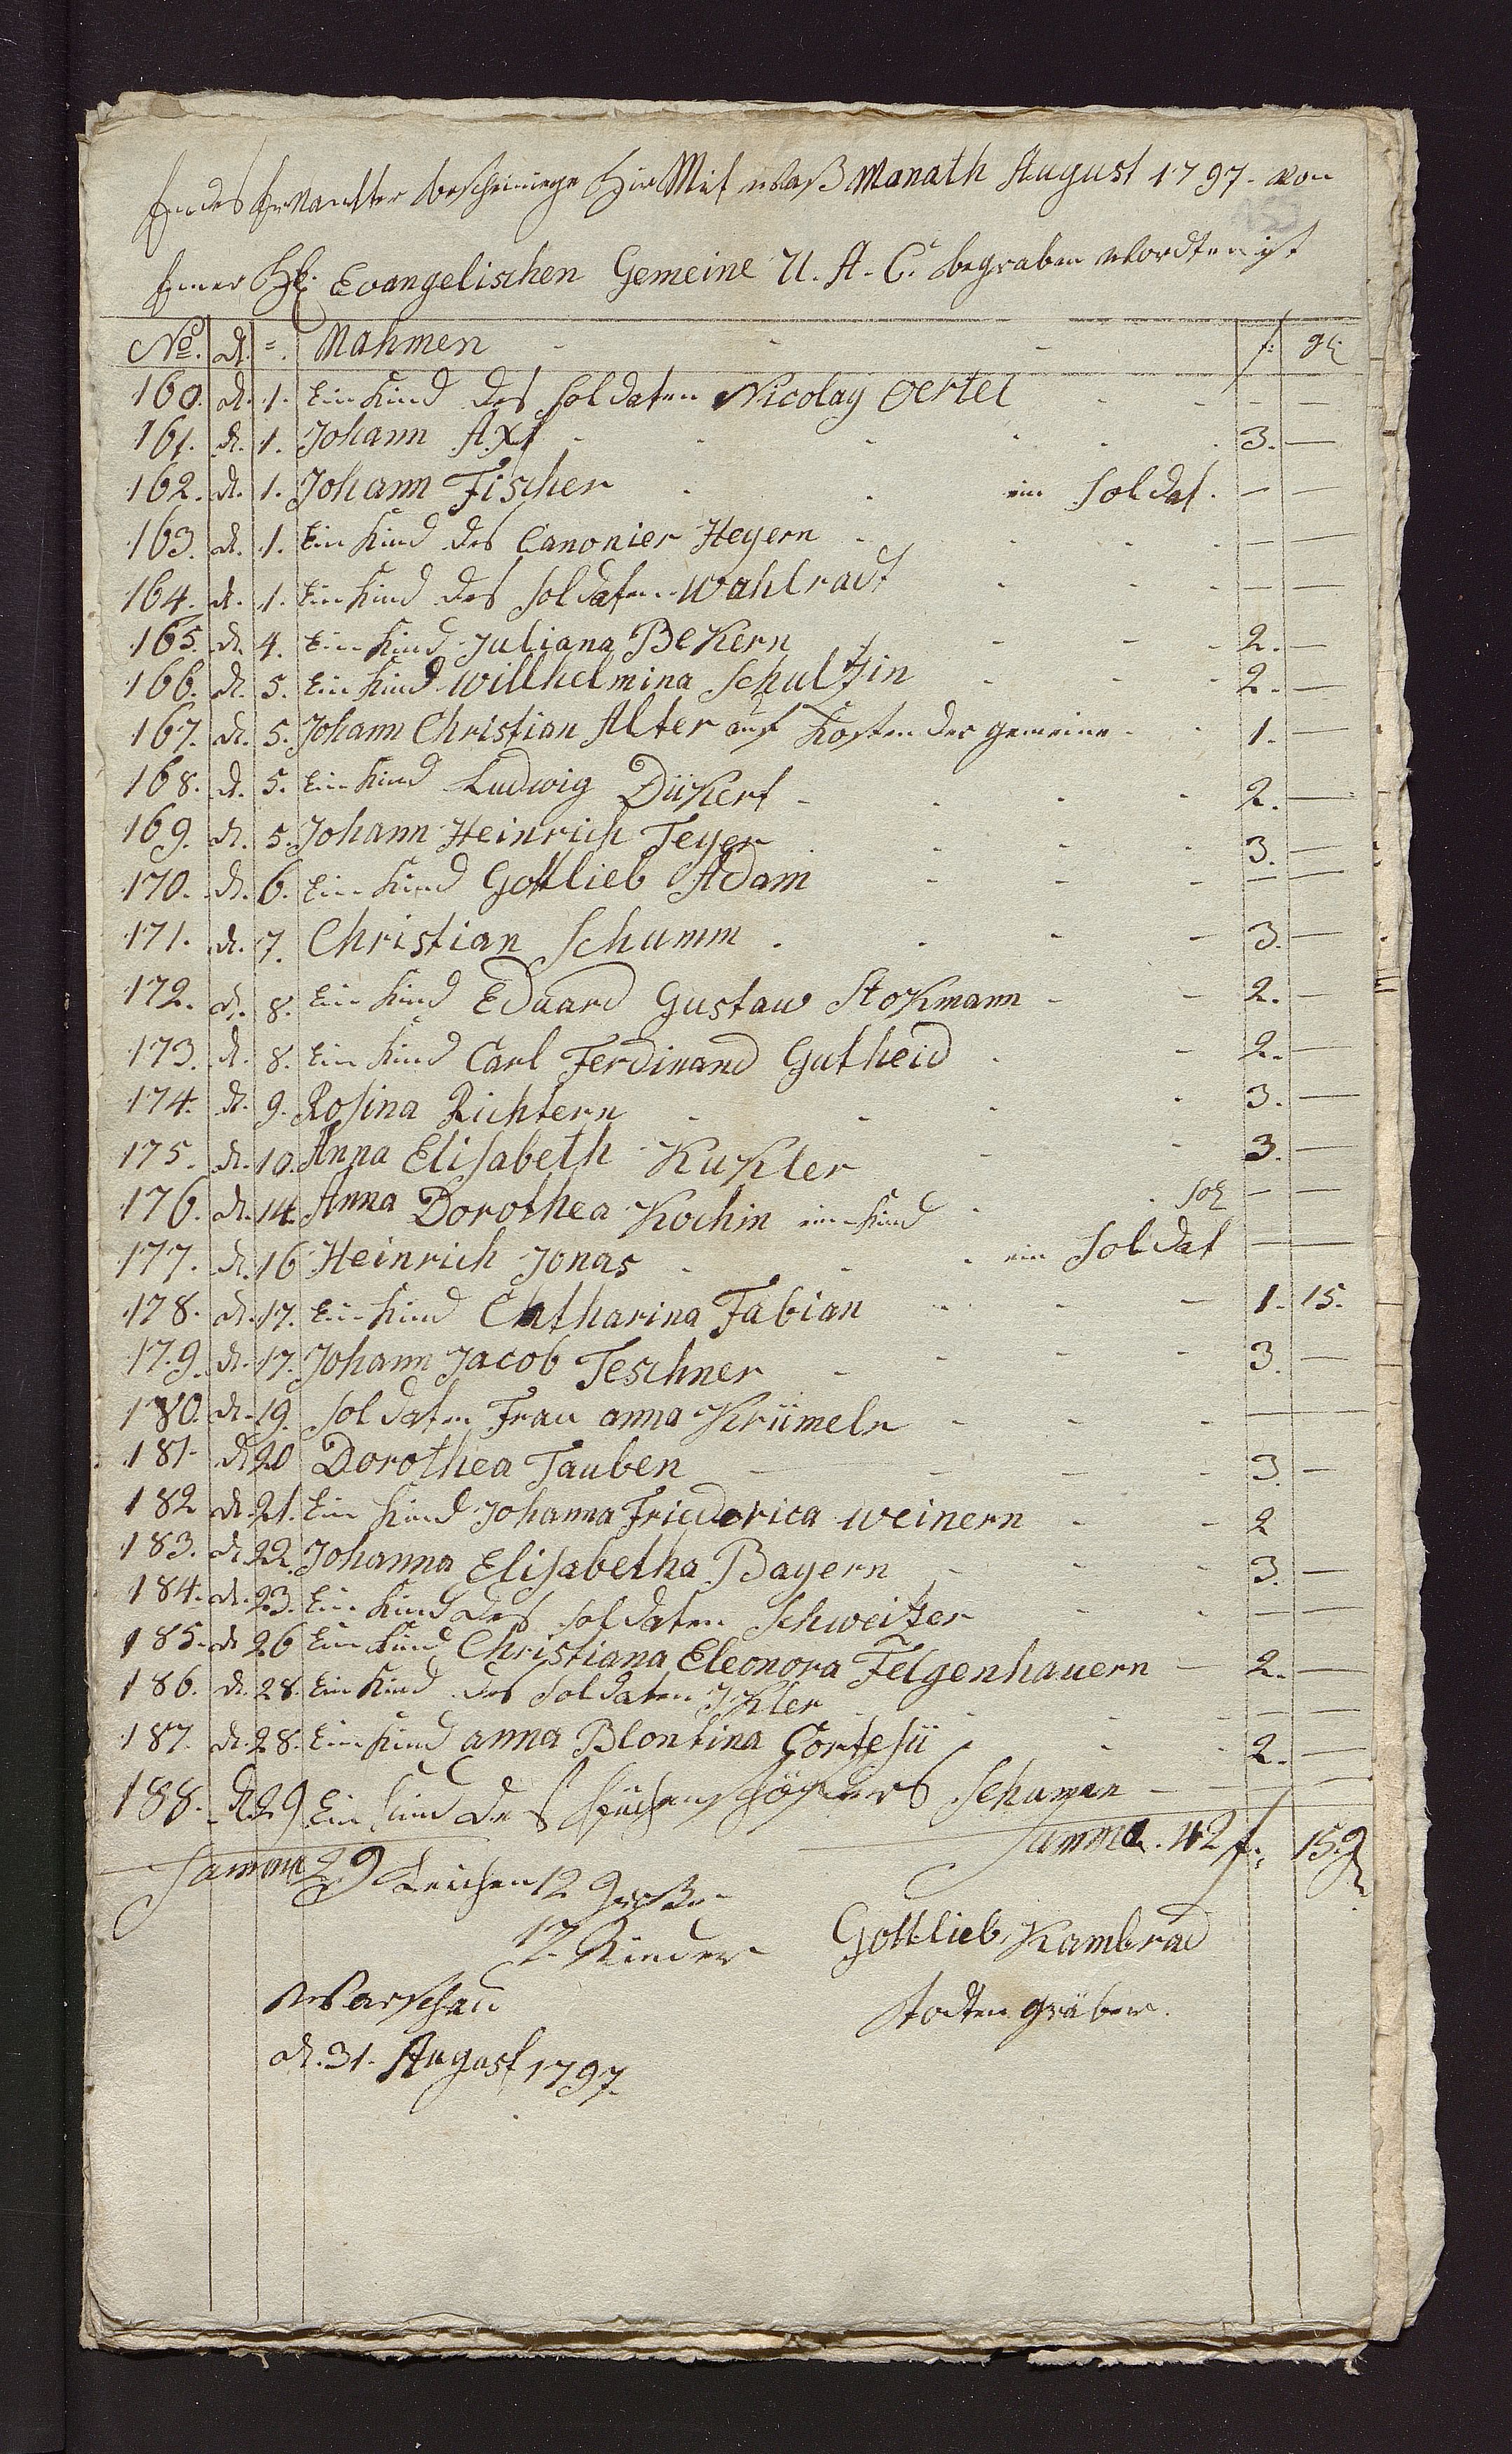 Endes Ernandter bescheinige hir Mit waß Monath August 1797. von
Einer Evangelischen Gemeine U. A. C. begraben wordten ist
No. d. =. Nahmen f: gl
160. d. 1. Ein Kind des Soldaten Nicolay Oertel — —
161. d. 1. Johann Axt 3. —
162. d. 1. Johann Fischer ein Soldat. — —
163. d. 1. Ein Kind des Canonier Heyern — —
164. d. 1. Ein Kind des Soldaten Wahlradt — —
165. d. 4. Ein Kind Juliana BeKern 2. —
166. d. 5. Ein Kind Willhelmina Schultzin 2. —
167. d. 5. Johann Christian Alter auf Kosten der gemeine 1. —
168. d. 5. Ein Kind Ludwig DüKert 2. —
169. d. 5. Johann Heinrich Teyer 3. —
170. d. 6. Ein Kind Gottlieb Adam — —
171. d. 7. Christian Schumm 3. —
172. d. 8. Ein Kind Eduard Gustaw StoKmann 2. —
173. d. 8. Ein Kind Carl Ferdinand Gutheid 2. —
174. d. 9. Rosina Richtern 3. —
175. d. 10. Anna Elisabeth KuKler 3. —
176. d. 14. Anna Dorothea Kochin ein Kind Sol — —
177. d. 16 Heinrich Jonas ein Soldat — —
178. d. 17. Ein Kind Chtharina Fabian 1. 15.
179. d. 17. Johann Jacob Teschner 3. —
180. d. 19. Soldaten Frau anna Krümeln — —
181. d 20 Dorothea Tauben 3. —
182 d. 21. Ein Kind Johanna Friederica weinern 2
183. d. 22. Johanna Elisabetha Bayern 3. —
184. d. 23. Ein Kind des Soldaten Schweitzer — —
185. d 26 Ein Kind Christiana Eleonora Felgenhauern 2. —
186. d. 28. Ein Kind des Soldaten JKler — —
187. d. 28. Ein Kind anna Blontina Cortesü 2. —
188. d. 29 Ein Kind des Schuman —
Summa 29 Leichen 12 Große Summa. 42 f: 15 g
17. Kinder Gottlieb Kambrad
Warschau Stodten gräber.
d. 31. August 1797.